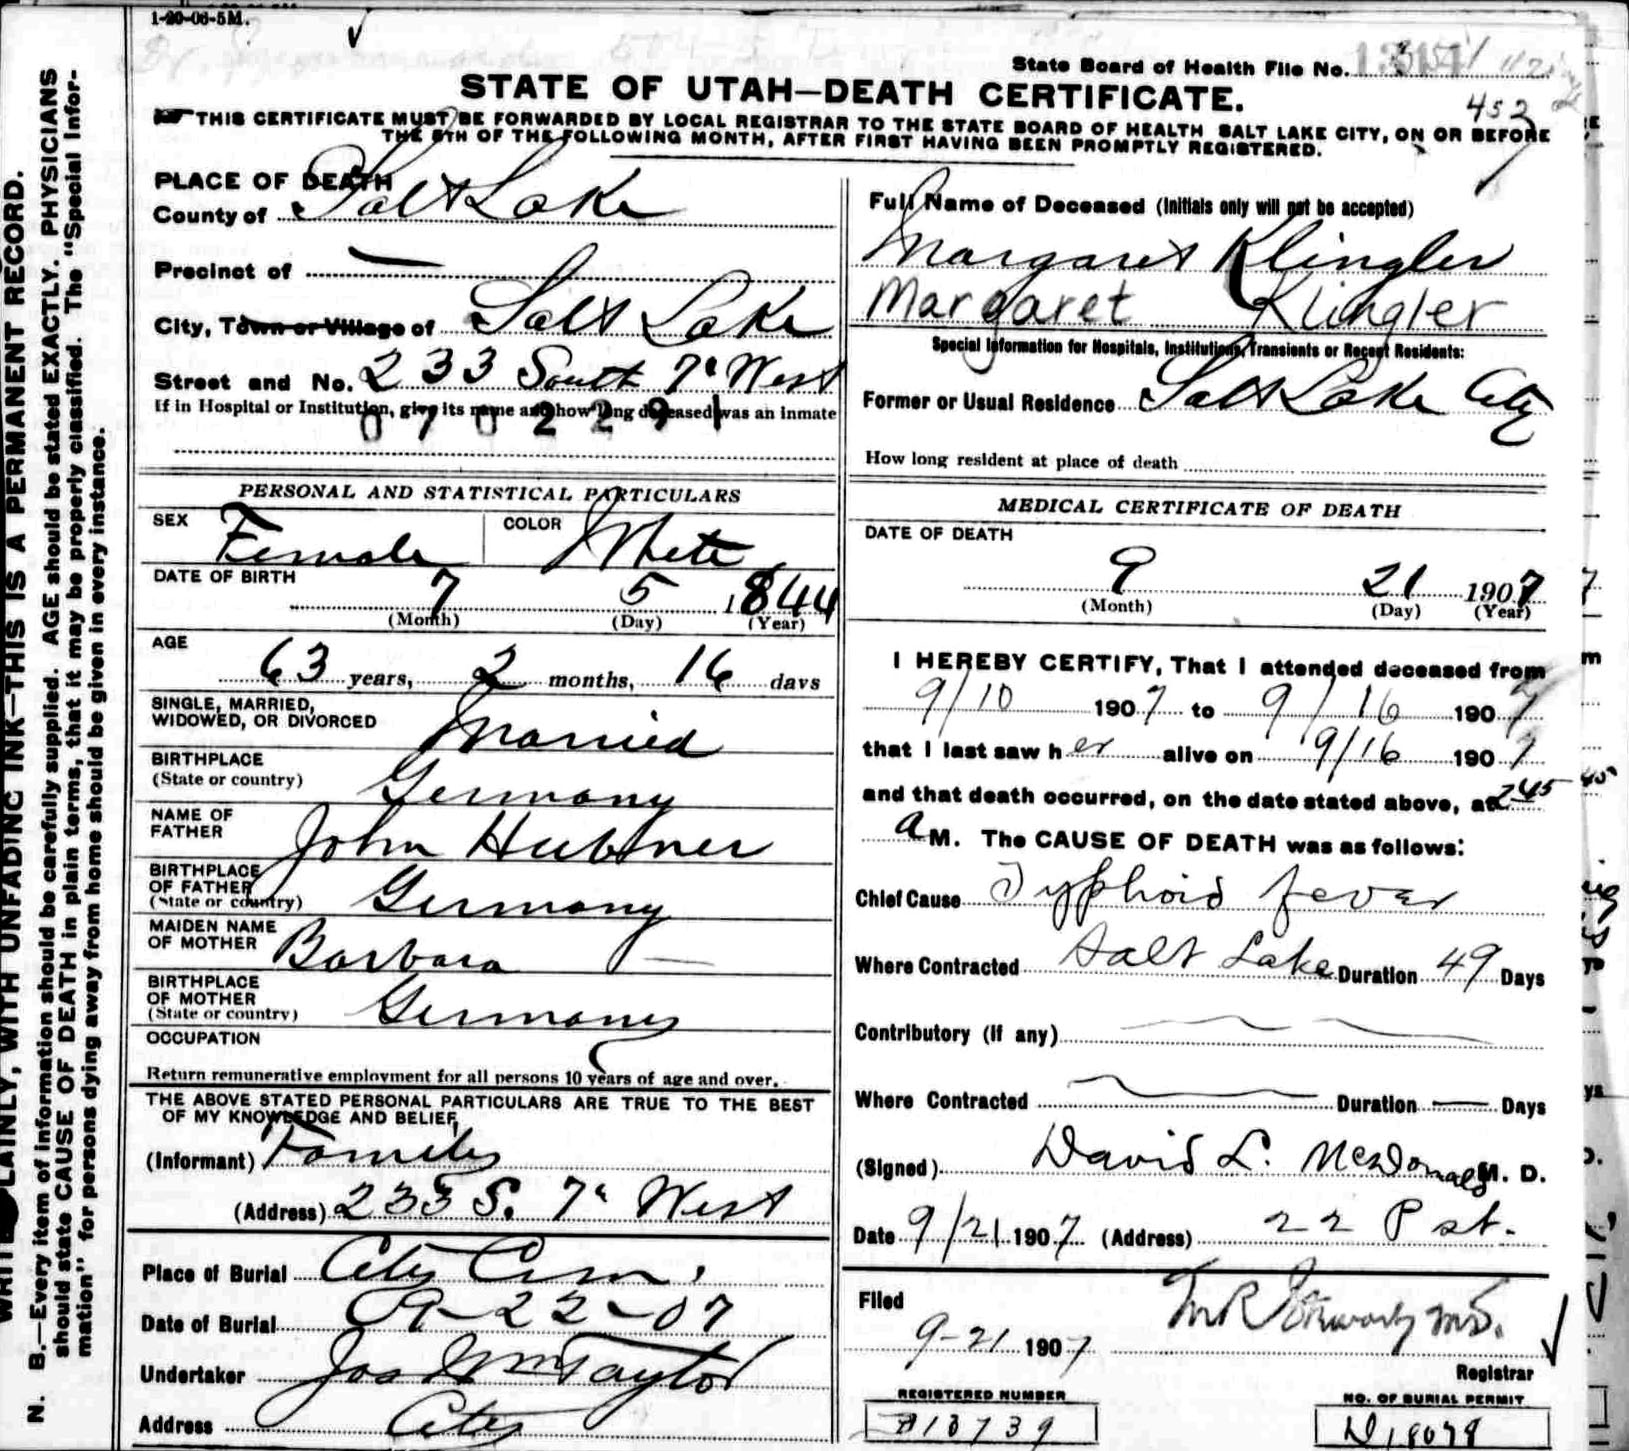 1-20-06-5M.
State Board of Health File No.
STATE OF UTAH—DEATH CERTIFICATE.
453
THIS CERTIFICATE MUST BE FORWARDED BY LOCAL REGISTRAR TO THE STATE BOARD OF HEALTH SALT LAKE CITY, ON OR BEFORE
THE 5TH OF THE FOLLOWING MONTH, AFTER FIRST HAVING BEEN PROMPTLY REGISTERED.
PLACE OF DEATH
County of Salt Lake
Precinct of —
City, Town or Village of Salt Lake
Street and No. 233 South 7" West
If in Hospital or Institution, give its name and how long deceased was an inmate
0 7 0 2 2 9 1
PERSONAL AND STATISTICAL PARTICULARS
SEX Female COLOR White
DATE OF BIRTH
7 5 1844
(Month) (Day) (Year)
AGE
63 years, 2 months, 16 days
SINGLE, MARRIED,
WIDOWED, OR DIVORCED Married
BIRTHPLACE
(State or country) Germany
NAME OF
FATHER John Hubner
BIRTHPLACE
OF FATHER
(State or country) Germany
MAIDEN NAME
OF MOTHER Barbara —
BIRTHPLACE
OF MOTHER
(State or country) Germany
OCCUPATION
Return remunerative employment for all persons 10 years of age and over.
THE ABOVE STATED PERSONAL PARTICULARS ARE TRUE TO THE BEST
OF MY KNOWLEDGE AND BELIEF,
(Informant) Family
(Address) 233 S. 7" West
Place of Burial City Cem.
Date of Burial 9-22-07
Undertaker Jos Wm Taylor
Address City
Full Name of Deceased (Initials only will not be accepted)
Margaret Klingler
Margaret Klingler
Special Information for Hospitals, Institutions, Transients or Recent Residents:
Former or Usual Residence Salt Lake City
How long resident at place of death
MEDICAL CERTIFICATE OF DEATH
DATE OF DEATH
9 21 1907
(Month) (Day) (Year)
I HEREBY CERTIFY, That I attended deceased from
9/10 1907 to 9/16 1907
that I last saw her alive on 9/16 1907
and that death occurred, on the date stated above, at 2 45
a M. The CAUSE OF DEATH was as follows:
Chief Cause Typhoid fever
Where Contracted Salt Lake Duration 49 Days
Contributory (if any)
Where Contracted Duration — Days
(Signed) David L. McDonald M. D.
Date 9/21 1907 (Address) 22 P st.
Filed
9-21 1907
Registrar
REGISTERED NUMBER
NO. OF BURIAL PERMIT
N. B.—Every item of information should be carefully supplied. AGE should be stated EXACTLY. PHYSICIANS
should state CAUSE OF DEATH in plain terms, that it may be properly classified. The "Special Infor-
mation" for persons dying away from home should be given in every instance.
PLAINLY, WITH UNFADING INK—THIS IS A PERMANENT RECORD.